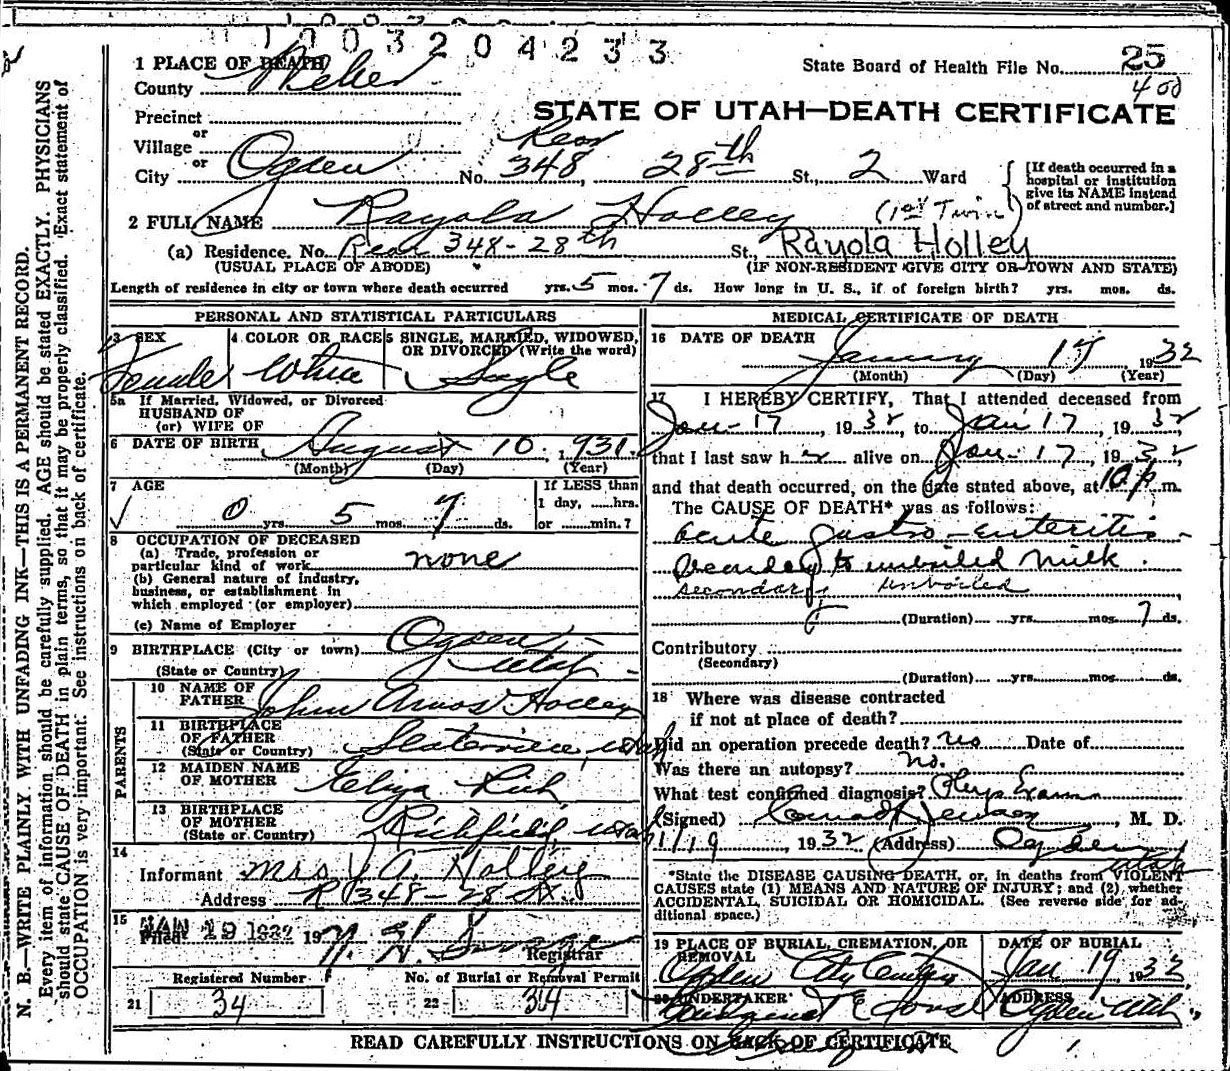 1003204233
1 PLACE OF DEATH
County Weber
State Board of Health File No. 25
400
STATE OF UTAH—DEATH CERTIFICATE
Precinct
or
Village
or
City Ogden No. Rear 348, 28th St., 2 Ward
[If death occurred in a hospital or institution give its NAME instead of street and number.]
2 FULL NAME Rayola Holley (1st Twin)
(a) Residence. No. Rear 348-28th St. Rayola Holley
(USUAL PLACE OF ABODE) (IF NON-RESIDENT GIVE CITY OR TOWN AND STATE)
Length of residence in city or town where death occurred yrs. 5 mos. 7 ds. How long in U. S., if of foreign birth? yrs. mos. ds.
PERSONAL AND STATISTICAL PARTICULARS
3 SEX Female
4 COLOR OR RACE White
5 SINGLE, MARRIED, WIDOWED, OR DIVORCED (Write the word) Single
5a If Married, Widowed, or Divorced
HUSBAND OF
(or) WIFE OF
6 DATE OF BIRTH August 10 1931.
(Month) (Day) (Year)
7 AGE
0 yrs. 5 mos. 7 ds.
If LESS than
1 day, ......hrs.
or ......min.?
8 OCCUPATION OF DECEASED
(a) Trade, profession or
particular kind of work none
(b) General nature of industry,
business, or establishment in
which employed (or employer)
(c) Name of Employer
9 BIRTHPLACE (City or town) Ogden
(State or Country) Utah
PARENTS
10 NAME OF FATHER John Amos Holley
11 BIRTHPLACE OF FATHER (State or Country) Slaterville, Utah
12 MAIDEN NAME OF MOTHER Eliza Rich
13 BIRTHPLACE OF MOTHER (State or Country) Richfield, Utah
14
Informant Mrs J. A. Holley
Address R 348-28 St.
15 JAN 19 1932
Filed 19
Registrar
Registered Number No. of Burial or Removal Permit
21 34 22 34
MEDICAL CERTIFICATE OF DEATH
16 DATE OF DEATH
January 17 1932
(Month) (Day) (Year)
17 I HEREBY CERTIFY, That I attended deceased from
Jan-17, 1932, to Jan 17, 1932,
that I last saw her alive on Jan-17, 1932,
and that death occurred, on the date stated above, at 10 p. m.
The CAUSE OF DEATH* was as follows:
acute gastro-enteritis-
secondary to unboiled milk.
secondary unboiled
(Duration) yrs. mos. 7 ds.
Contributory
(Secondary)
(Duration) yrs. mos. ds.
18 Where was disease contracted
if not at place of death?
Did an operation precede death? no Date of
Was there an autopsy? no.
What test confirmed diagnosis? Phys Exam
(Signed) Conrad Jensen, M. D.
1/19, 1932 (Address) Ogden Utah
*State the DISEASE CAUSING DEATH, or, in deaths from VIOLENT
CAUSES state (1) MEANS AND NATURE OF INJURY; and (2), whether
ACCIDENTAL, SUICIDAL OR HOMICIDAL. (See reverse side for ad-
ditional space.)
19 PLACE OF BURIAL, CREMATION, OR REMOVAL Ogden City Cemetery
DATE OF BURIAL Jan 19 1932
20 UNDERTAKER
ADDRESS Ogden Utah
READ CAREFULLY INSTRUCTIONS ON BACK OF CERTIFICATE
N. B.—WRITE PLAINLY WITH UNFADING INK—THIS IS A PERMANENT RECORD.
Every item of information should be carefully supplied. AGE should be stated EXACTLY. PHYSICIANS
should state CAUSE OF DEATH in plain terms, so that it may be properly classified. Exact statement of
OCCUPATION is very important. See instructions on back of certificate.